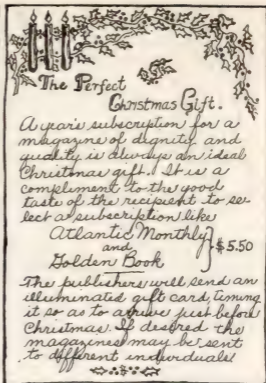 The Perfect
Christmas Gift.
A year's subscription for a
magazine of dignity and
quality is always an ideal
Christmas gift. It is a
compliment to the good
taste of the recipient to se-
lect a subscription like
Atlantic Monthly
and } $5.50
Golden Book
The publishers will send an
illuminated gift card, timing
it so as to arrive just before
Christmas. If desired the
magazines may be sent
to different individuals